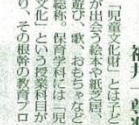 「児童文化財」とは子ど
が出会う絵本や紙芝居、
遊び、歌、おもちゃなど
総称。保育学科には「児
文化」という授業科目が
り、その根幹の教育プロ